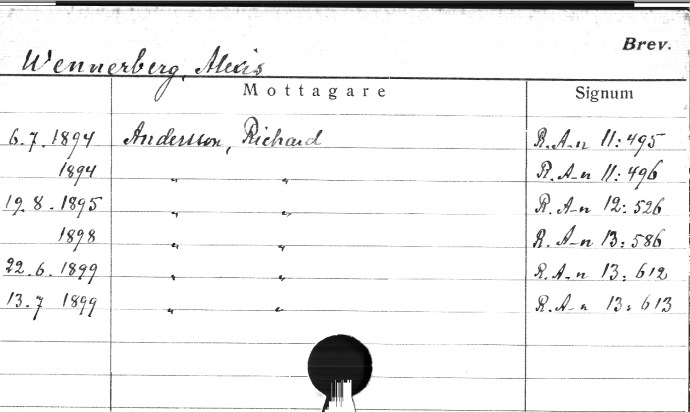 Brev.
Wennerberg, Alexis
Mottagare Signum
6.7.1894 Andersson, Richard R.A-n 11:495
1894 " " R.A-n 11:496
19.8.1895 " " R.A-n 12:526
1898 " " R.A-n 13:586
22.6.1899 " " R.A-n 13:612
13.7 1899 " " R.A-n 13:613